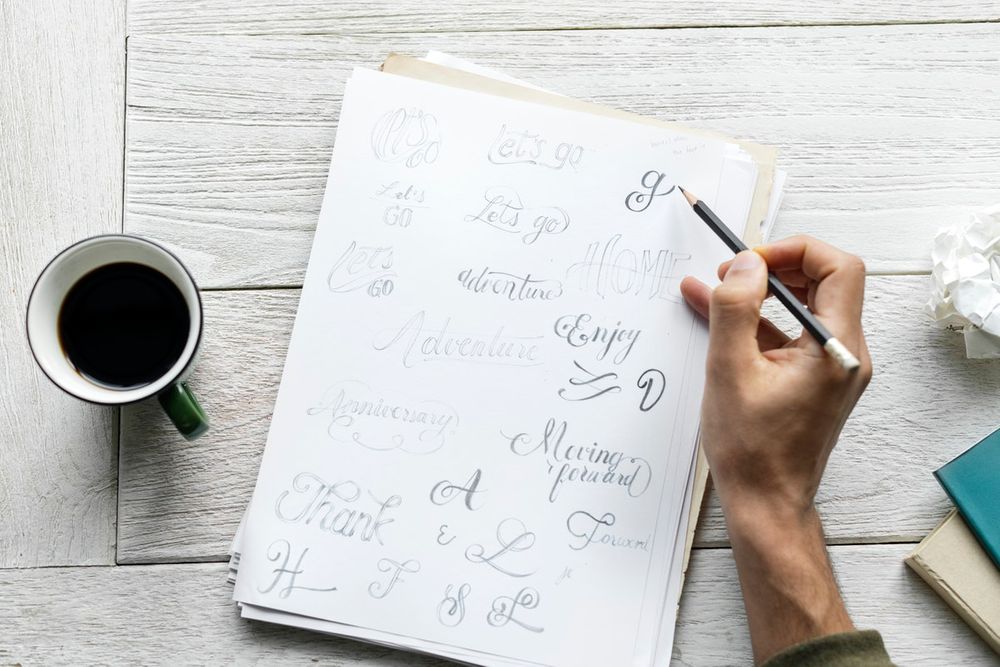 Let's
GO
Let's go
g
Let's
GO
Let's go
Let's
GO
adventure
HOME
Adventure
Enjoy
D
Anniversary
Moving
forward
Thank
A
Forward
ε
L
H
F
S
L